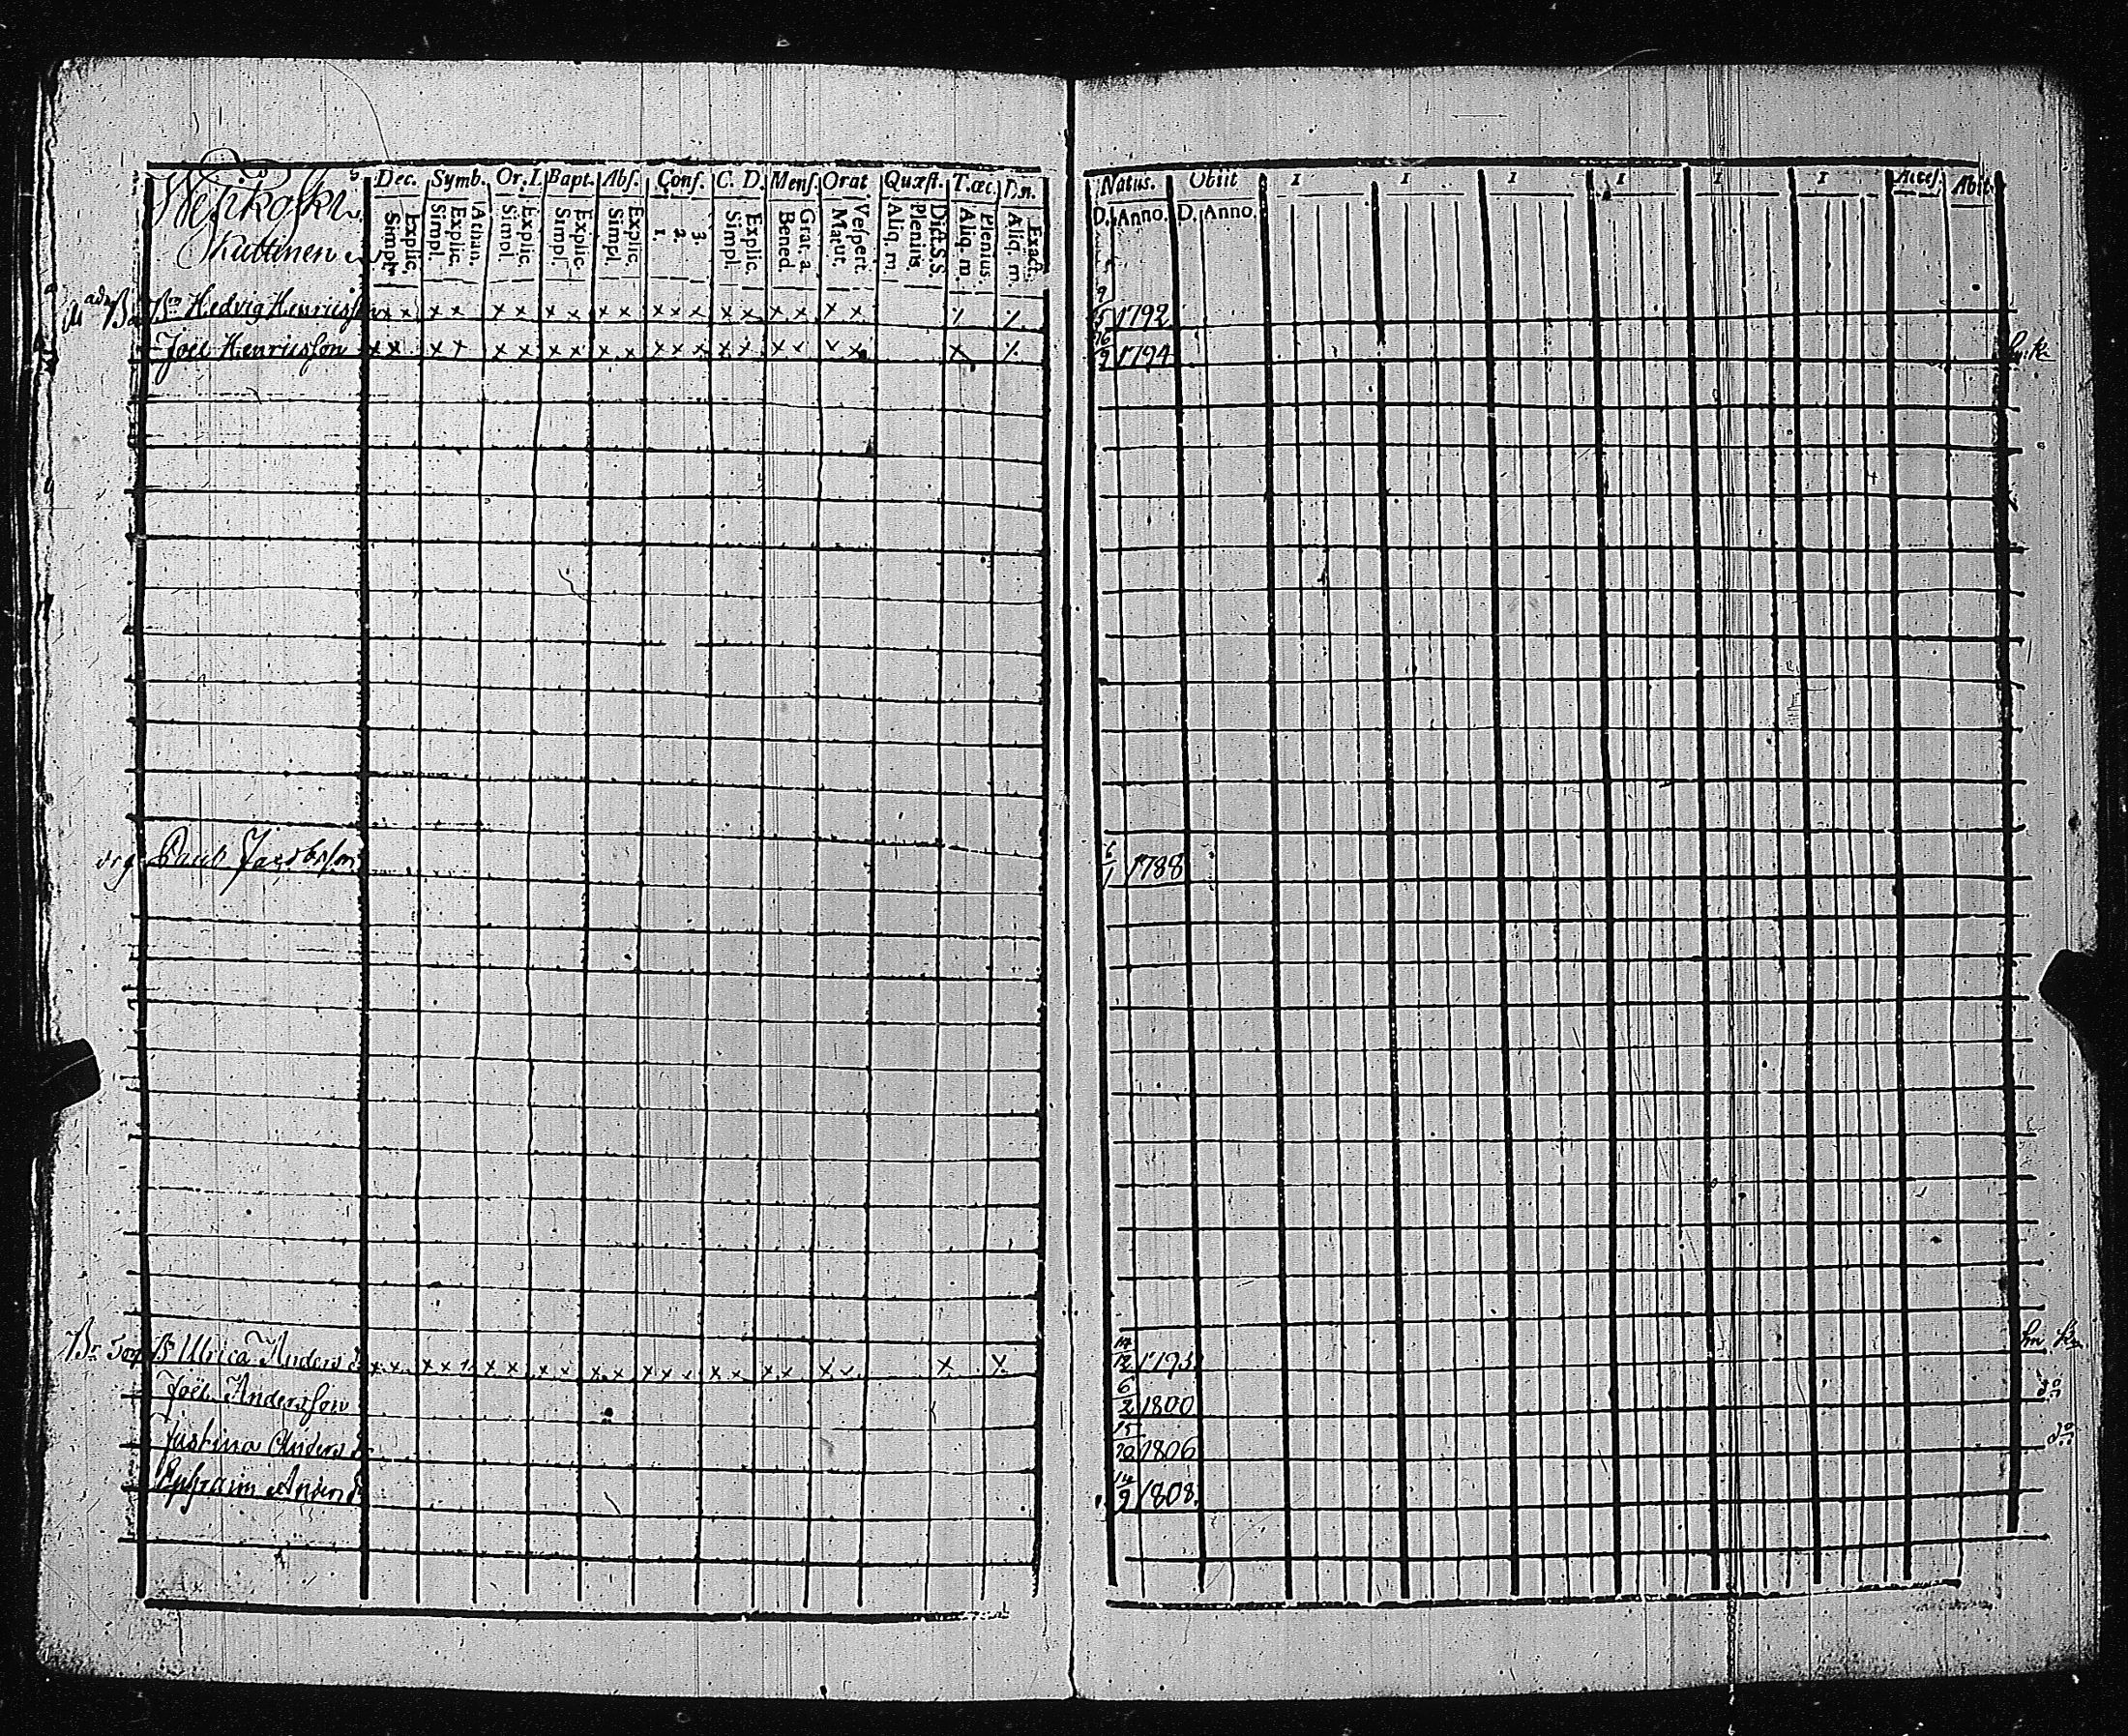 Wesikoski
Huttunen
Dec. Symb. Or. I. Bapt. Abs. Conf. C. D. Mens. Orat. Quæst. T. œc. D. n.
Explic. Simpl. Athan. Explic. Simpl. Explic. Simpl. Explic. Simpl. Explic. Simpl. 3. 2. 1. Explic. Simpl. Grat. a. Bened. Vespert. Matut. Dict. S.S. Plenius. Aliq. m. Plenius. Aliq. m. Exact. Aliq. m.
Natus. Obiit 1 1 1 1 1 1 Acces. Abit.
D. Anno. D. Anno.
Hedvig Henricsson x x x x x x x x x x x x x x x x x x x 9/5 1792
Joel Henricsson x x x x x x x x x x x x x x x x x x x x 16/9 1794
Paul Jacobsson 6/1 1788
Br. Son Ulrica Anders D x x x x x x x x x x x x x x x x x x x x x x 14/12 1793
Joel Andersson 6/2 1800 do
Justina Anders D 15/10 1806 do
Ephraim Anders 14/9 1808.